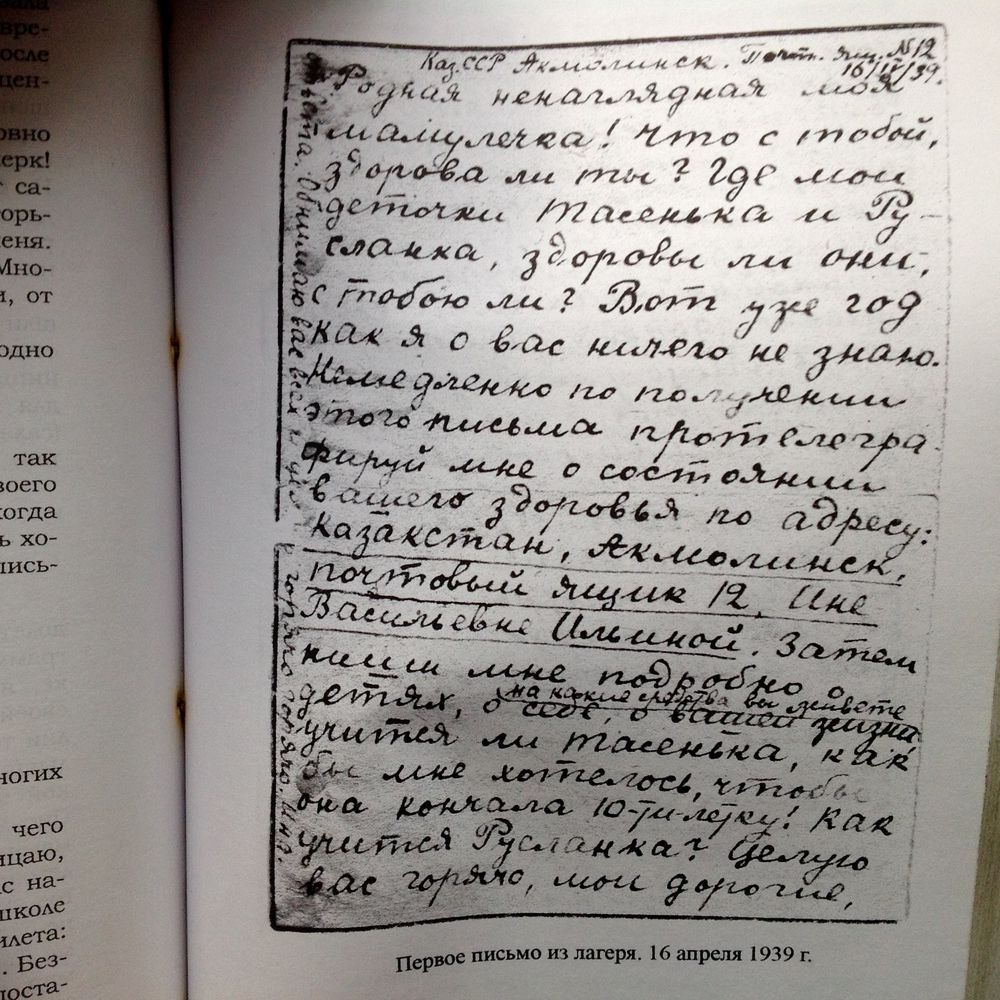 вала
вре-
после
цен-
овно
черк!
т са-
горь-
меня.
Мно-
и, от
одно
так
своего
когда
ь хо-
пись-
многих
чего
щаю,
ас на-
школе
илета:
. Без-
поста-
Каз.ССР Акмолинск. Почт. ящ. №12
16/IV/39.
Родная ненаглядная моя
мамулечка! Что с тобой,
здорова ли ты? Где мои
деточки Тасенька и Ру-
сланка, здоровы ли они,
с тобою ли? Вот уже год
как я о вас ничего не знаю.
Немедленно по получении
этого письма протелегра-
фируй мне о состоянии
вашего здоровья по адресу:
Казакстан, Акмолинск,
почтовый ящик 12, Ине
Васильевне Ильиной. Затем
пиши мне подробно о
детях, о себе, о вашей жизни
на какие средства вы живете
учится ли Тасенька, как
бы мне хотелось, чтобы
она кончала 10-ти-летку! Как
учится Русланка? Целую
вас горячо, мои дорогие,
ответа. Обнимаю вас всех и
горячо горячо. Ина.
Первое письмо из лагеря. 16 апреля 1939 г.